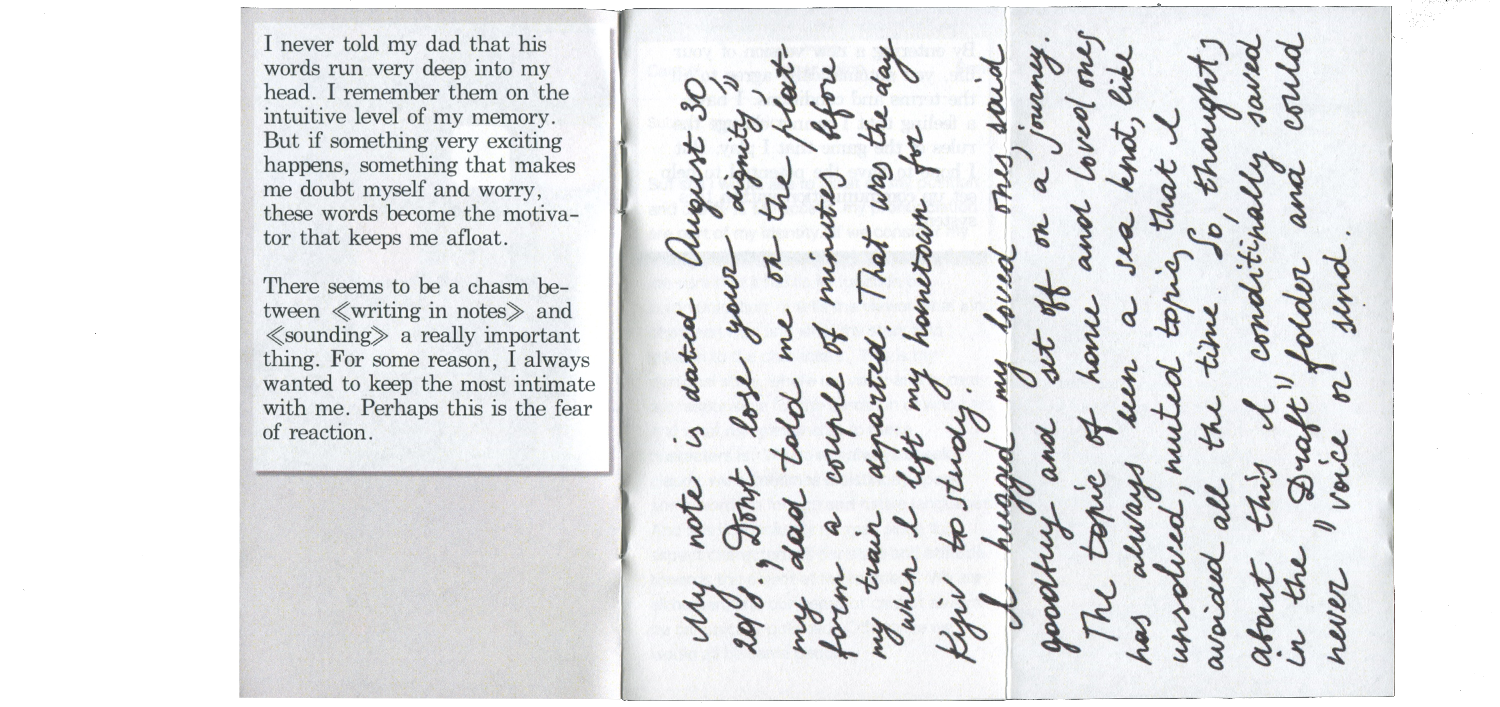 I never told my dad that his
words run very deep into my
head. I remember them on the
intuitive level of my memory.
But if something very exciting
happens, something that makes
me doubt myself and worry,
these words become the motiva-
tor that keeps me afloat.
There seems to be a chasm be-
tween ≪writing in notes≫ and
≪sounding≫ a really important
thing. For some reason, I always
wanted to keep the most intimate
with me. Perhaps this is the fear
of reaction.
My note is dated August 30,
2018. "Dont lose your dignity",
my dad told me on the plat-
form a couple of minutes before
my train departed. That was the day
when I left my hometown for
Kyiv to study.
I hugged my loved ones said
goodbuy and set off on a journey.
The topic of home and loved ones
has always been a sea knot, like
unsolved, muted topic, that I
avoided all the time. So, thoughts
about this I conditionally saved
in the "Draft" folder and could
never "voice or send.